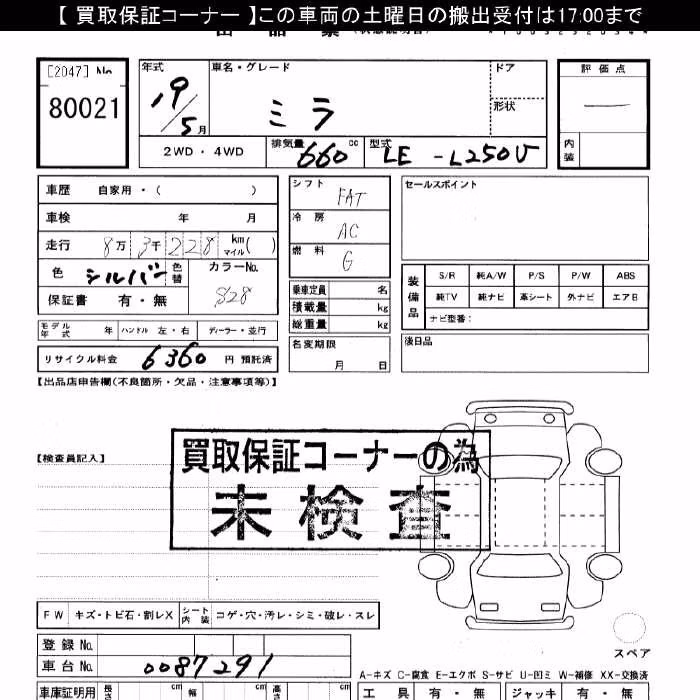 【 買取保証コーナー 】この車両の土曜日の搬出受付は17:00まで
[2047] No
80021
年式 19/5 月
車名・グレード ミラ
ドア
形状
評価点
—
内装
2WD ・ 4WD
排気量 660 cc
型式 LE -L250V
車歴 自家用 ・( )
車検 年 月
走行 8万 3千 228 km マイル ( )
色 シルバー 色替
カラーNo. S28
保証書 有 ・ 無
モデル年式 年 ハンドル 左 ・ 右 ディーラー ・ 並行
リサイクル料金 6360 円 預託済
シフト FAT
冷房 AC
燃料 G
乗車定員 名
積載量 kg
総重量 kg
名変期限 月 日
セールスポイント
装備品
S/R 純A/W P/S P/W ABS
純TV 純ナビ 革シート 外ナビ エアB
ナビ型番:
後日品
【出品店申告欄(不良箇所・欠品・注意事項等)】
【検査員記入】
買取保証コーナーの為
未検査
FW キズ・トビ石・割レX シート内装 コゲ・穴・汚レ・シミ・破レ・スレ
登録 No.
車台 No. 0087291
スペア
A-キズ C-腐食 E-エクボ S-サビ U-凹ミ W-補修 XX-交換済
車庫証明用 長さ cm 幅 cm 高さ cm
工具 有 ・ 無 ジャッキ 有 ・ 無